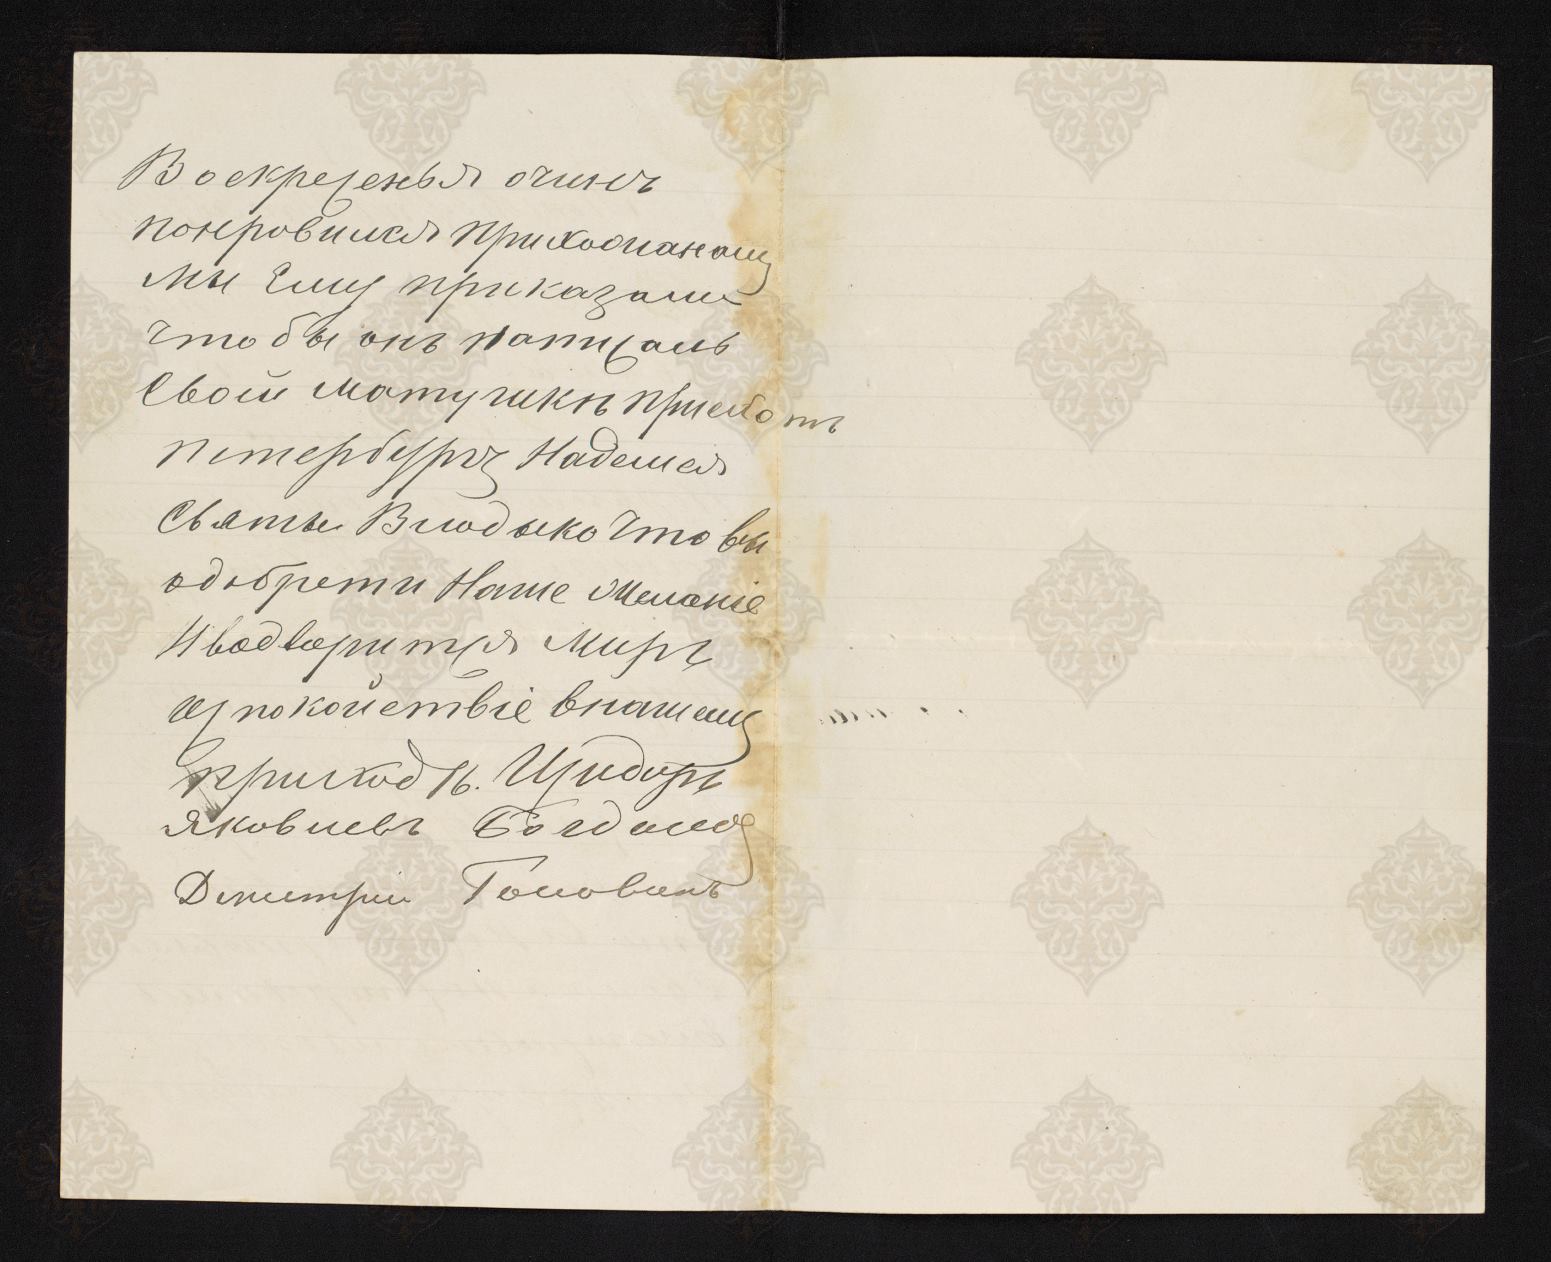 Воскресенья очинь
понровился прихожанамъ
Мы Ему приказали
Чтобы онъ написалъ
Свой матушкѣ приехать
петербургъ Надемся
Святы Влодыко Что вы
одобрети Наше Желаніе
И водворится Миръ
испокойствіе внашемъ
приходѣ. Исидоръ
Яковлевъ Богданов
Дмитрий Головинъ